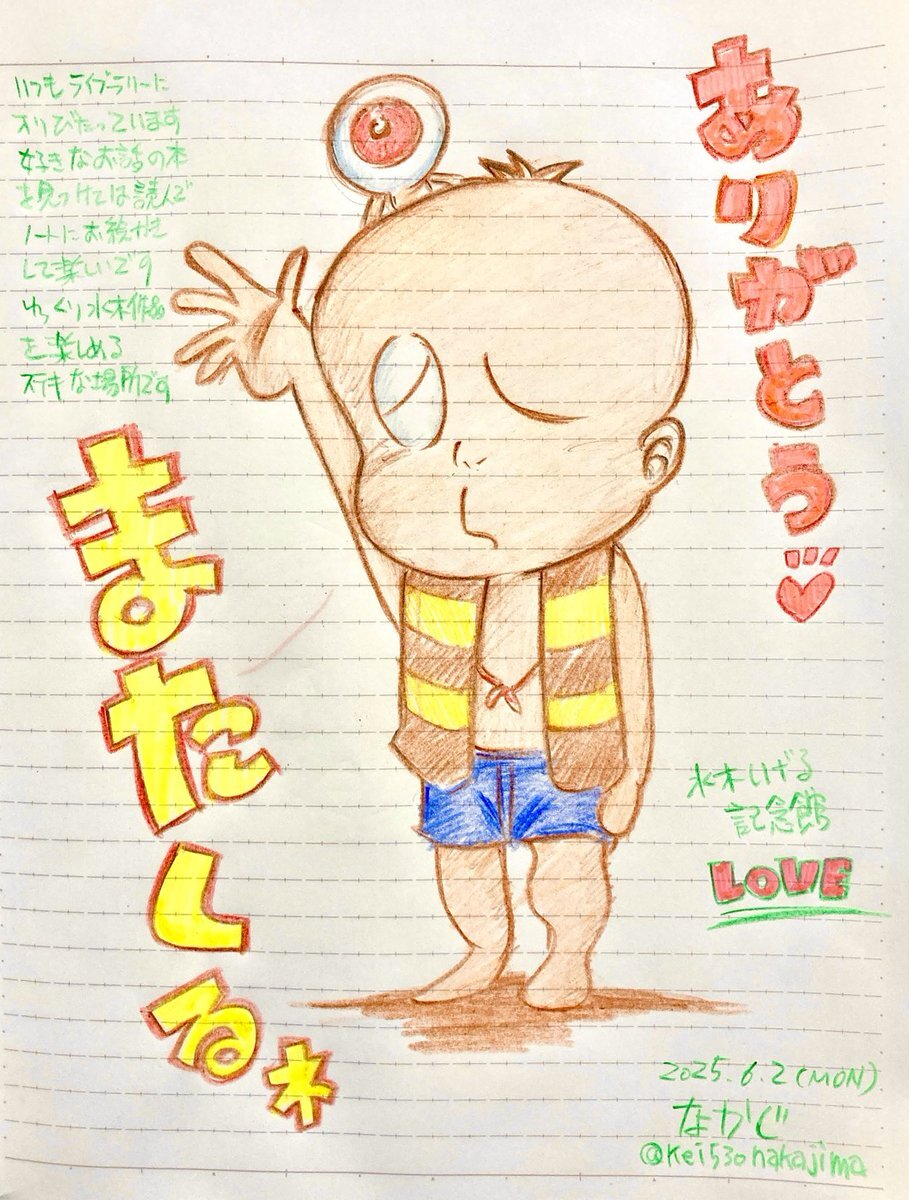 いつもライブラリーに
入りびたっています
好きなお話の本
を見つけては読んで
ノートにお絵かき
して楽しいです
ゆっくり水木作品
を楽しめる
ステキな場所です
ありがとう♡
またくるネ
水木しげる
記念館
LOVE
2025.6.2(MON)
なかじ
@kei530nakajima